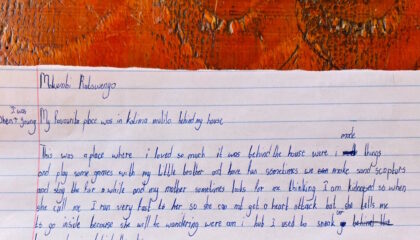 Makumbi Rabawenyo
I was
when I young
My favourite place was in Katima mulilo behind my house
made
This was a place where i loved so much it was behind the house were i things
and play some games with my little brother and have fun sometimes we make sand sculpters
and stay there for a while and my mother sometimes looks for me thinking I am kidnaped so when
she call me I run very fast to her so she can not get a heart attack but she tells me
or
to go inside because she will be wondering were am i but I used to sneak behind the